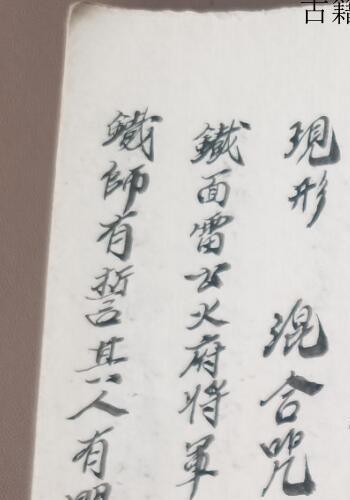 古籍
現形 混合咒
鐵面雷公火府将軍
鐵師有誓其人有